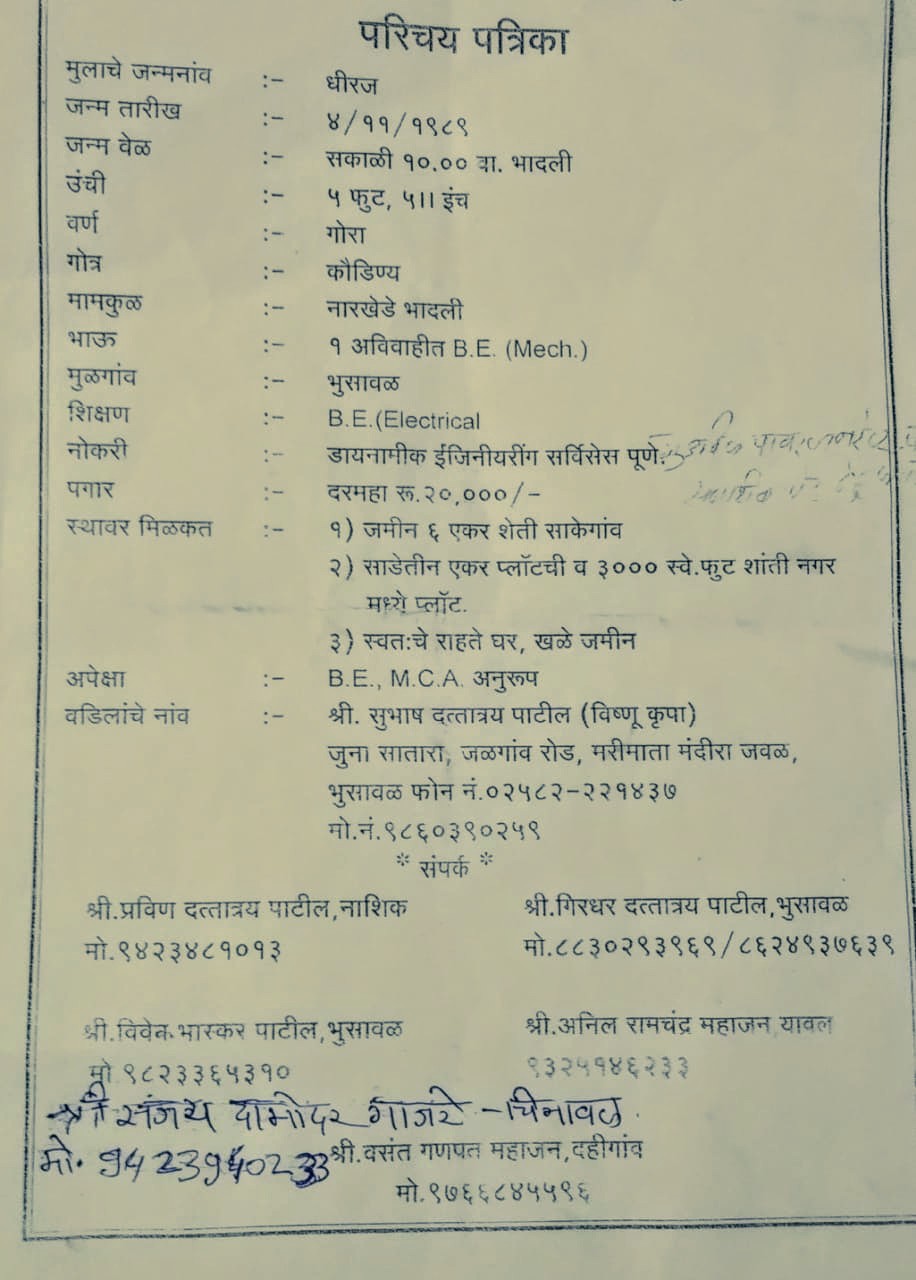 परिचय पत्रिका
मुलाचे जन्मनांव :- धीरज
जन्म तारीख :- ४/११/१९८९
जन्म वेळ :- सकाळी १०.०० वा. भादली
उंची :- ५ फुट, ५।। इंच
वर्ण :- गोरा
गोत्र :- कौडिण्य
मामकुळ :- नारखेडे भादली
भाऊ :- १ अविवाहीत B.E. (Mech.)
मुळगांव :- भुसावळ
शिक्षण :- B.E.(Electrical
नोकरी :- डायनामीक ईंजिनीयरींग सर्विसेस पूणे.
पगार :- दरमहा रू.२०,०००/-
स्थावर मिळकत :- १) जमीन ६ एकर शेती साकेगांव
२) साडेतीन एकर प्लॉटची व ३००० स्वे.फुट शांती नगर
मध्ये प्लॉट.
३) स्वतःचे राहते घर, खळे जमीन
अपेक्षा :- B.E., M.C.A. अनुरूप
वडिलांचे नांव :- श्री. सुभाष दत्तात्रय पाटील (विष्णू कृपा)
जुना सातारा, जळगांव रोड, मरीमाता मंदीरा जवळ,
भुसावळ फोन नं.०२५८२-२२१४३७
मो.नं.९८६०३९०२५९
* संपर्क *
श्री.प्रविण दत्तात्रय पाटील,नाशिक श्री.गिरधर दत्तात्रय पाटील,भुसावळ
मो.९४२३४८१०१३ मो.८८३०२९३९६९/८६२४९३७६३९
श्री.विवेक भास्कर पाटील,भुसावळ श्री.अनिल रामचंद्र महाजन यावल
मो ९८२३३६५३१० ९३२५१४६२३३
श्री संजय दामोदर गाजरे - चिनावल.
मो. 9423940233 श्री.वसंत गणपत महाजन,दहीगांव
मो.९७६६८४५५९६